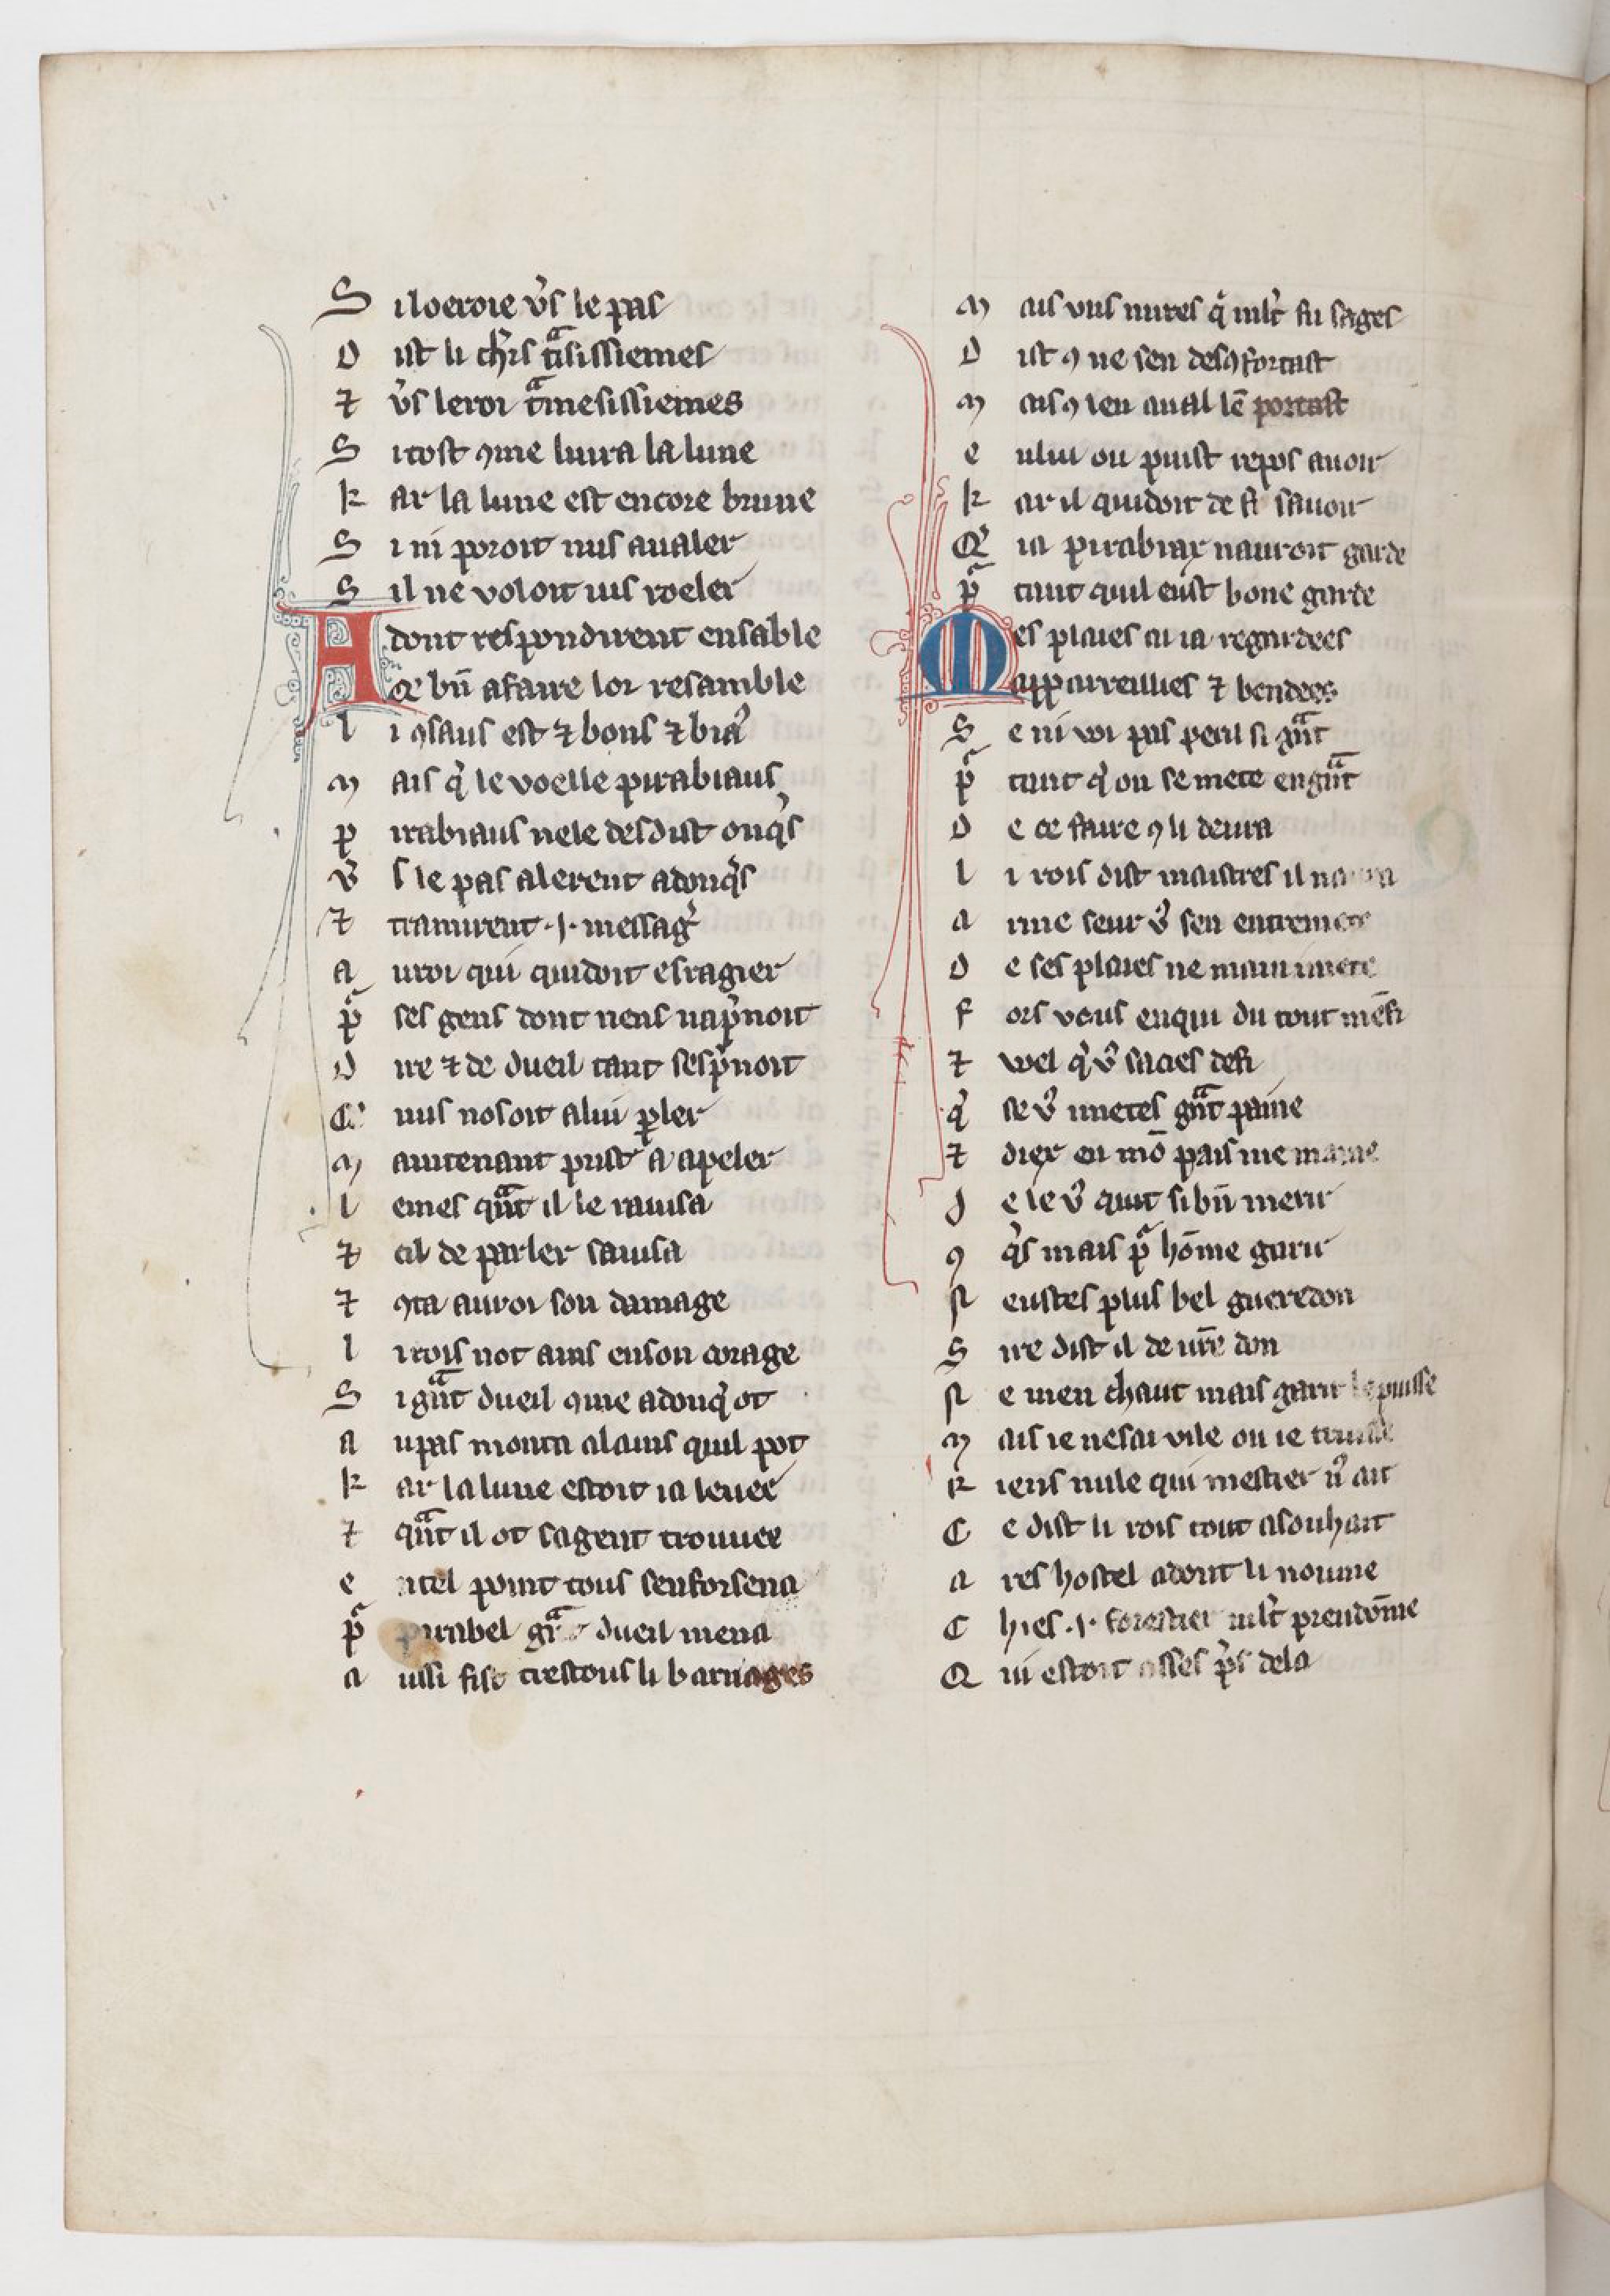 S iloeroie v͛s le pas
D ist li ch͛rs tͣisissiemes
⁊ v͛s leroi tͣmesissiemes
S itost ꝯme luira la lune
k ar la lune est encore brune
S i ni poroit nus aualer
S il ne voloit ius roeler
A dont respondirent ensãble
ce bn̄ afaire lor resamble
l i ꝯsaus est ⁊ bons ⁊ biaꝰ
m ais qͥ le voelle pirabiaus
p irabiaus nele desdist onq͛s
v͛ s le pas alerent adonq͛s
⁊ tramirent .j. messag͛
a uroi qui quidoit esragier
pͬ ses gens dont nens nap͛noit
D ire ⁊ de dueil tant sesp͛noit
Qͥ nus nosoit alui ꝑler
m aintenant prist a apeler
l emes qͣnt il le rauisa
⁊ cil de parler sauisa
⁊ ꝯta auroi son damage
l i rois not ains enson corage
S i gͣnt dueil ꝯme adonqͥ ot
a upas monta alains quil pot
k ar la lune estoit ia leuee
⁊ qͣnt il ot sagent trouuee
e itel point tous senforsena
pͬ pirabel gͣ dueil mena
a ussi fist trestous li barnages
m ais vns mires qͥ mlt͛ fu sages
D ist ꝯ ne sen desꝯfortast
m ais ꝯ len aual lē portast
e nliu ou puist repos auoir
k ar il quidoit de fi sauoir
Qͥ ia pirabiax nauroit garde
pͬ tant quil eust bone garde
M es plaies ai ia regardees
apparreillies ⁊ bendees
S e ni voi pas peril si gͣnt
pͬ tant qͥ on se mete engͣnt
D e ce faire ꝯ li deura
l i rois dist maistres il naura
a me seur v͛ sen entremete
D e ses plaies ne main imete
f ors vous enqui du tout mēfi
⁊ voel qͥ v͛ sacies defi
qͥ se v͛ imetes gͣnt paine
⁊ diex en mō pais me maine
J e le v͛ quit si bn̄ merir
ꝯ q͛s mais pͬ hōme garir
N eustes plus bel gueredon
S ire dist il de urē don
N e men chaut mais garir le puisse
m ais ie nesai vile ou ie truisse
R iens nule qui mestier ni ait
C e dist li rois tout asouhait
a res hostel adont li noume
C hies .j. forestier mlt͛ preudōme
Q ui estoit asses p͛s dela